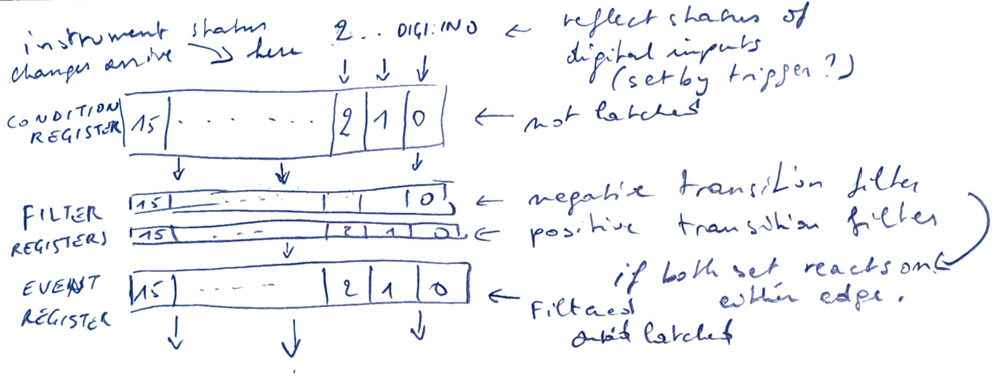 instrument status
changes arrive → here
2.. DIGI:INO ← reflect status of
digital inputs
(set by trigger?)
CONDITION
REGISTER
15 . . . . . . 2 1 0
← not latched
FILTER
REGISTERS
15 0
← negative transition filter
15 - - - 2 1 0
← positive transition filter
if both set reacts on
either edge.
EVENT
REGISTER
15 - - - - 2 1 0
← Filtered
latched